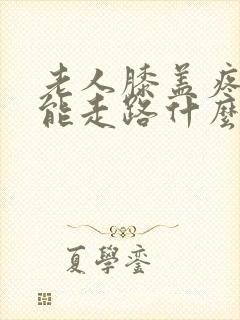 老人膝盖疼
能走路什麼
夏學銮